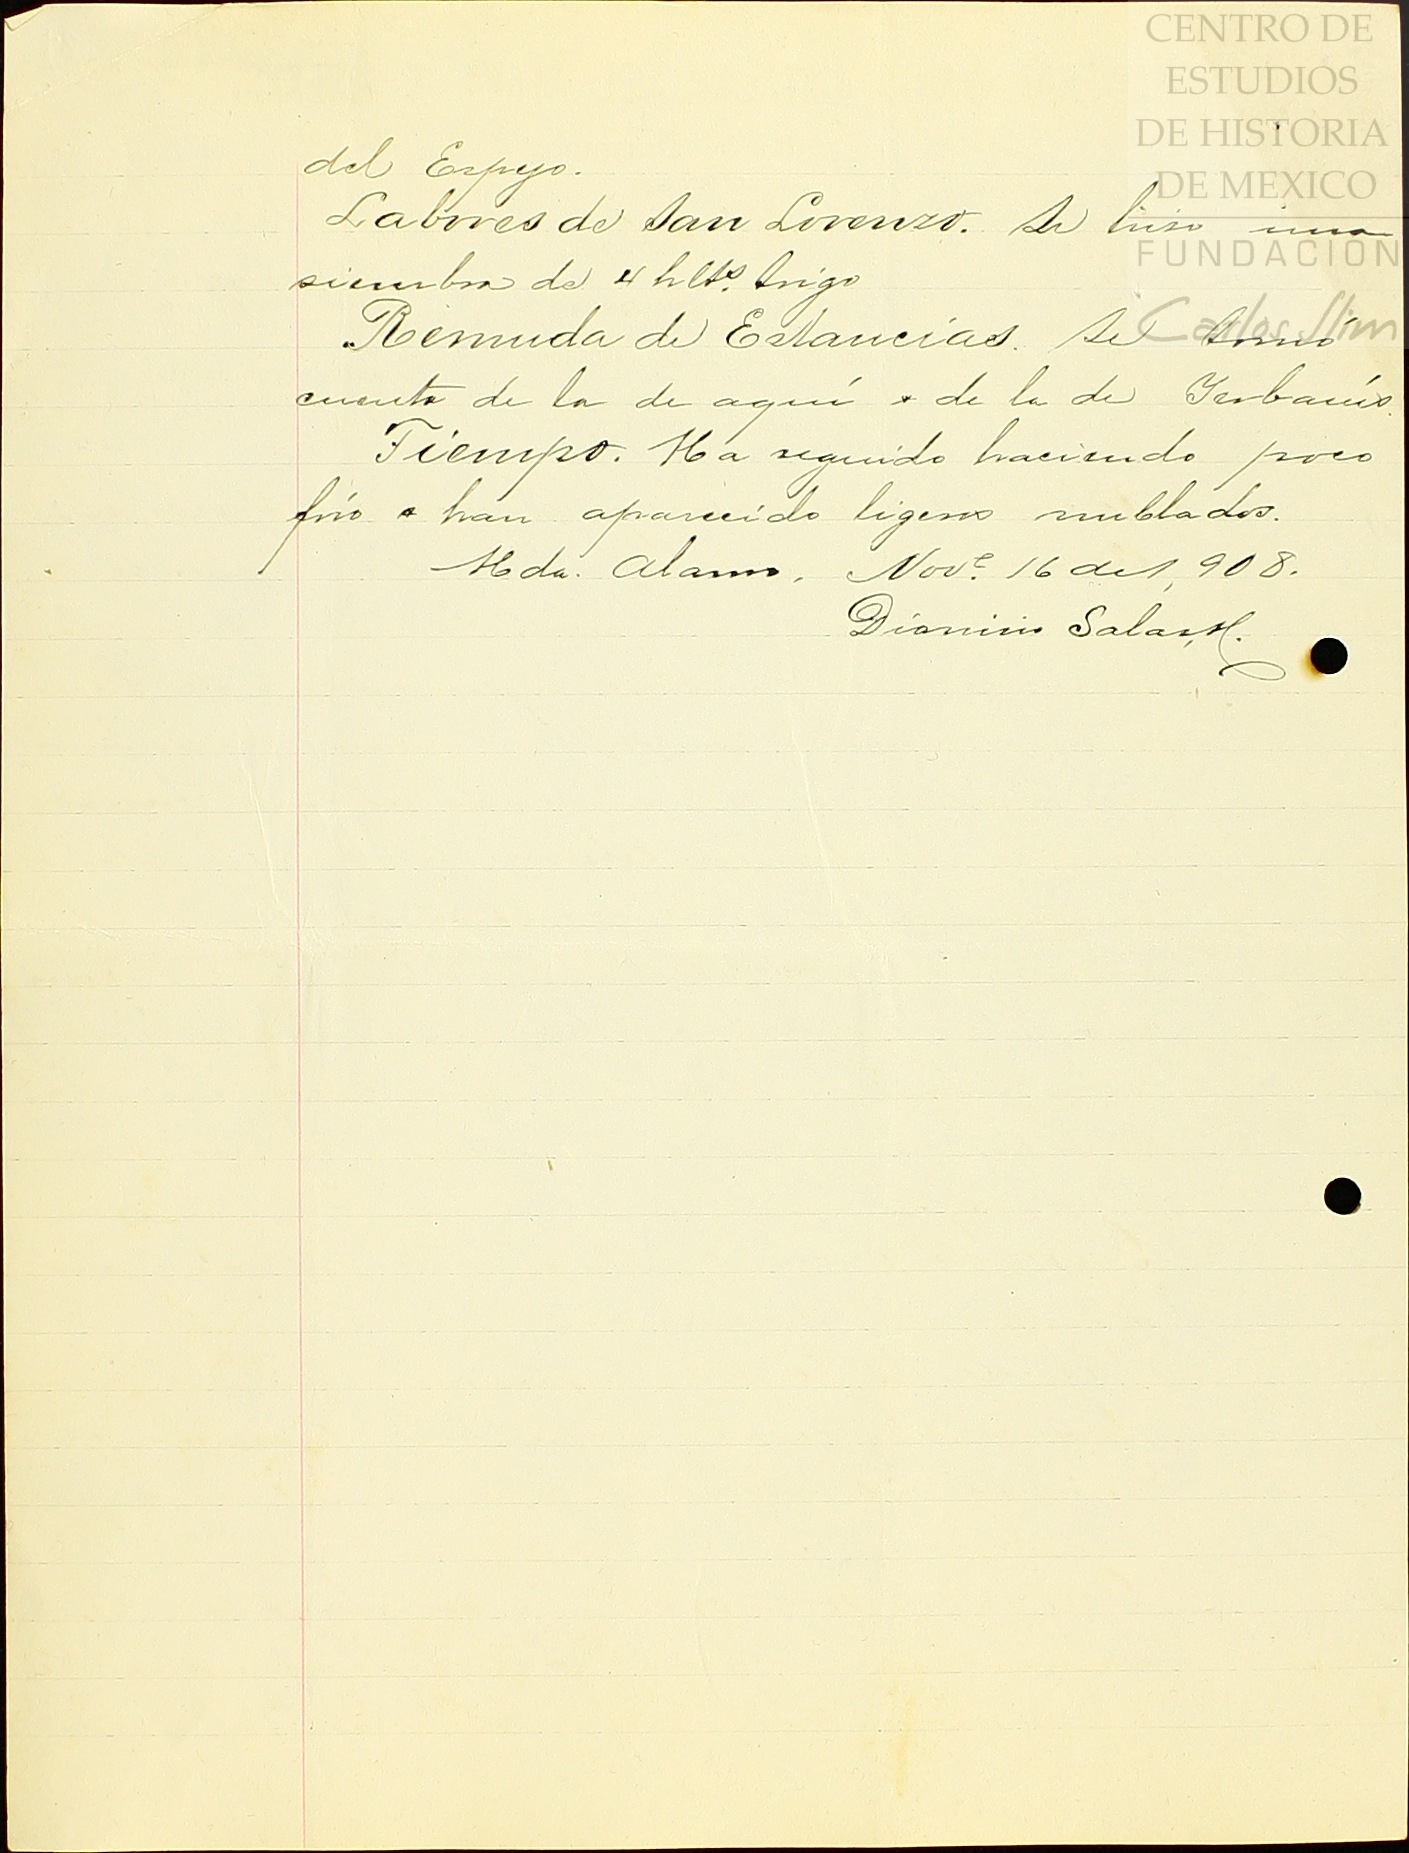 CENTRO DE
ESTUDIOS
DE HISTORIA
DE MEXICO
FUNDACION
Carlos Slim
del Espejo.
Labores de San Lorenzo. Se hiso una
siembra de 4 hlts. trigo
Remuda de Estancias. Se tomó
cuenta de la de aquí & de la de Yerbanís.
Tiempo. Ha seguido haciendo poco
frío & han aparecido ligeros nublados.
Hda. Alamo, Nove. 16 de 1,908.
Dionisio Salas, H.